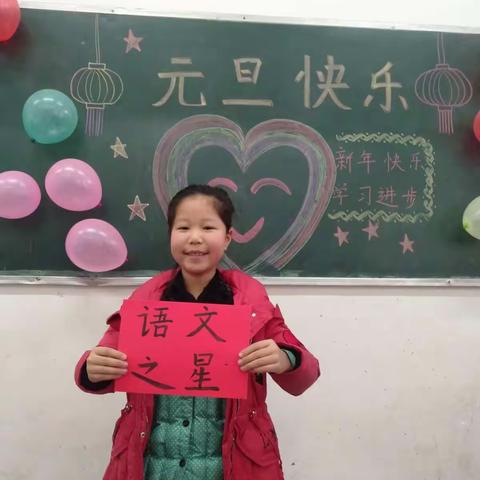 元旦快乐
新年快乐
学习进步
语文
之星